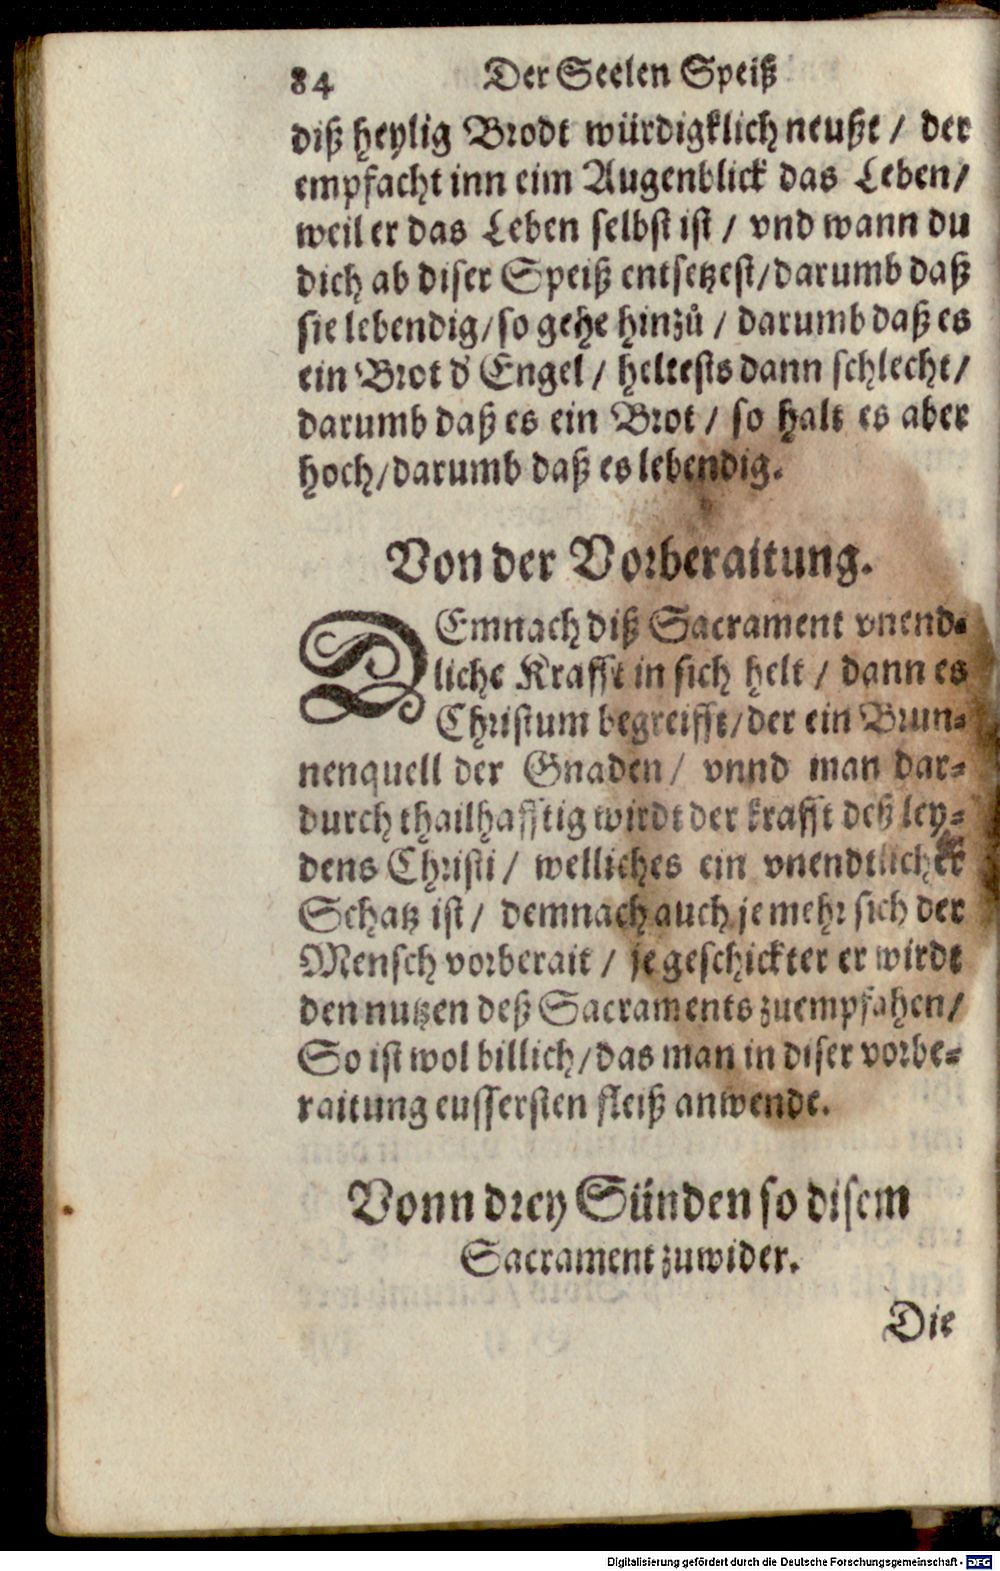 84 Der Seelen Speiß
diß heylig Brodt würdigklich neußt / der
empfacht inn eim Augenblick das Leben /
weil er das Leben selbst ist / vnd wann du
dich ab diser Speiß entsetzest / darumb daß
sie lebendig / so gehe hinzů / darumb daß es
ein Brot d' Engel / heltests dann schlecht /
darumb daß es ein Brot / so halt es aber
hoch / darumb daß es lebendig.
Von der Vorberaitung.
DEmnach diß Sacrament vnend-
liche Krafft in sich helt / dann es
Christum begreifft / der ein Brun-
nenquell der Gnaden / vnnd man dar-
durch thailhafftig wirdt der krafft deß ley-
dens Christi / welliches ein vnendtlicher
Schatz ist / demnach auch je mehr sich der
Mensch vorberait / je geschickter er wirdt
den nutzen deß Sacraments zuempfahen /
So ist wol billich / das man in diser vorbe-
raitung eussersten fleiß anwende.
Vonn drey Sünden so disem
Sacrament zuwider.
Die
Digitalisierung gefördert durch die Deutsche Forschungsgemeinschaft - DFG